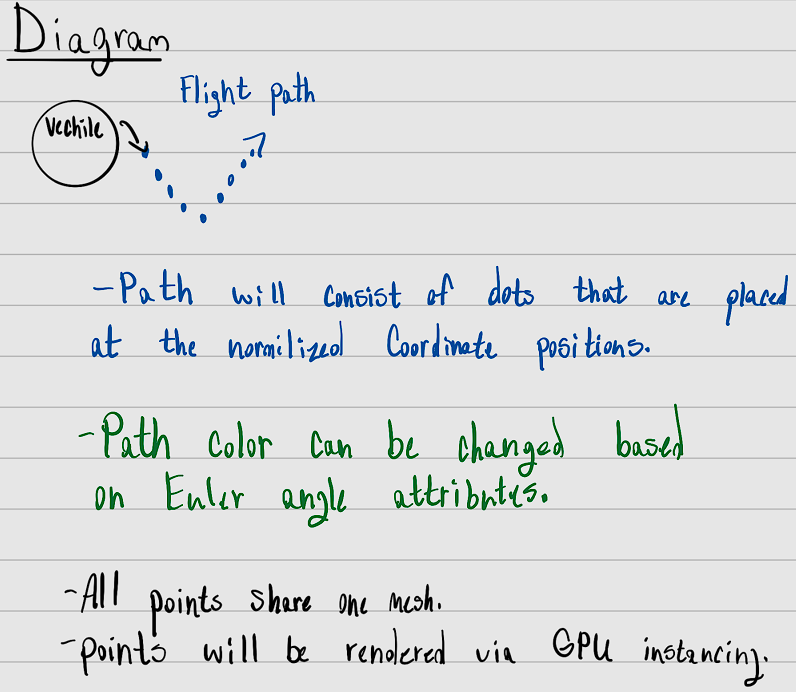 Diagram
Flight path
Vechile
-Path will consist of dots that are placed
at the normilized Coordinate positions.
-Path color can be changed based
on Euler angle attributes.
-All points share one mesh.
-points will be rendered via GPU instancing.